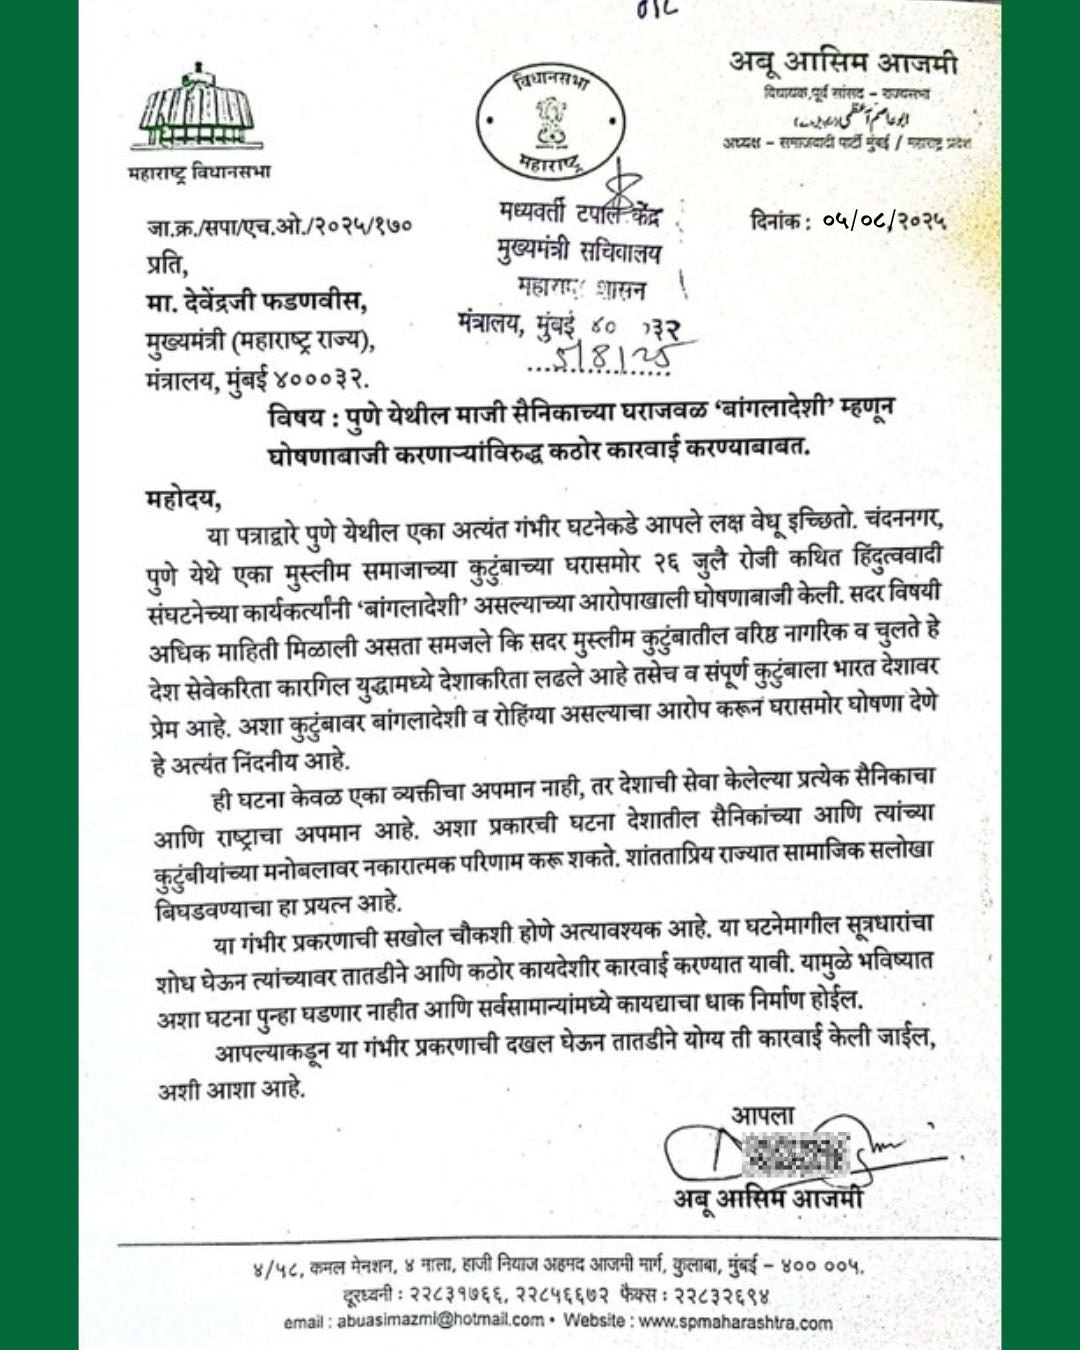 अबू आसिम आजमी
विधायक, पूर्व सांसद – राज्यसभा
अध्यक्ष – समाजवादी पार्टी मुंबई / महाराष्ट्र प्रदेश
महाराष्ट्र विधानसभा
विधानसभा
महाराष्ट्र
जा.क्र./सपा/एच.ओ./२०२५/१७०
दिनांक : ०५/०८/२०२५
मध्यवर्ती टपाल केंद्र
मुख्यमंत्री सचिवालय
शासन
मंत्रालय, मुंबई ४०
5/8/25
प्रति,
मा. देवेंद्रजी फडणवीस,
मुख्यमंत्री (महाराष्ट्र राज्य),
मंत्रालय, मुंबई ४०००३२.
विषय : पुणे येथील माजी सैनिकाच्या घराजवळ ‘बांगलादेशी’ म्हणून
घोषणाबाजी करणाऱ्यांविरुद्ध कठोर कारवाई करण्याबाबत.
महोदय,
या पत्राद्वारे पुणे येथील एका अत्यंत गंभीर घटनेकडे आपले लक्ष वेधू इच्छितो. चंदननगर,
पुणे येथे एका मुस्लीम समाजाच्या कुटुंबाच्या घरासमोर २६ जुलै रोजी कथित हिंदुत्ववादी
संघटनेच्या कार्यकर्त्यांनी ‘बांगलादेशी’ असल्याच्या आरोपाखाली घोषणाबाजी केली. सदर विषयी
अधिक माहिती मिळाली असता समजले कि सदर मुस्लीम कुटुंबातील वरिष्ठ नागरिक व चुलते हे
देश सेवेकरिता कारगिल युद्धामध्ये देशाकरिता लढले आहे तसेच व संपूर्ण कुटुंबाला भारत देशावर
प्रेम आहे. अशा कुटुंबावर बांगलादेशी व रोहिंग्या असल्याचा आरोप करून घरासमोर घोषणा देणे
हे अत्यंत निंदनीय आहे.
ही घटना केवळ एका व्यक्तीचा अपमान नाही, तर देशाची सेवा केलेल्या प्रत्येक सैनिकाचा
आणि राष्ट्राचा अपमान आहे. अशा प्रकारची घटना देशातील सैनिकांच्या आणि त्यांच्या
कुटुंबीयांच्या मनोबलावर नकारात्मक परिणाम करू शकते. शांतताप्रिय राज्यात सामाजिक सलोखा
बिघडवण्याचा हा प्रयत्न आहे.
या गंभीर प्रकरणाची सखोल चौकशी होणे अत्यावश्यक आहे. या घटनेमागील सूत्रधारांचा
शोध घेऊन त्यांच्यावर तातडीने आणि कठोर कायदेशीर कारवाई करण्यात यावी. यामुळे भविष्यात
अशा घटना पुन्हा घडणार नाहीत आणि सर्वसामान्यांमध्ये कायद्याचा धाक निर्माण होईल.
आपल्याकडून या गंभीर प्रकरणाची दखल घेऊन तातडीने योग्य ती कारवाई केली जाईल,
अशी आशा आहे.
आपला
अबू आसिम आजमी
४/५८, कमल मेनशन, ४ माला, हाजी नियाज अहमद आजमी मार्ग, कुलाबा, मुंबई – ४०० ००५.
दूरध्वनी : २२८३१७६६, २२८५६६७२ फैक्स : २२८३२६९४
email : abuasimazmi@hotmail.com • Website : www.spmaharashtra.com